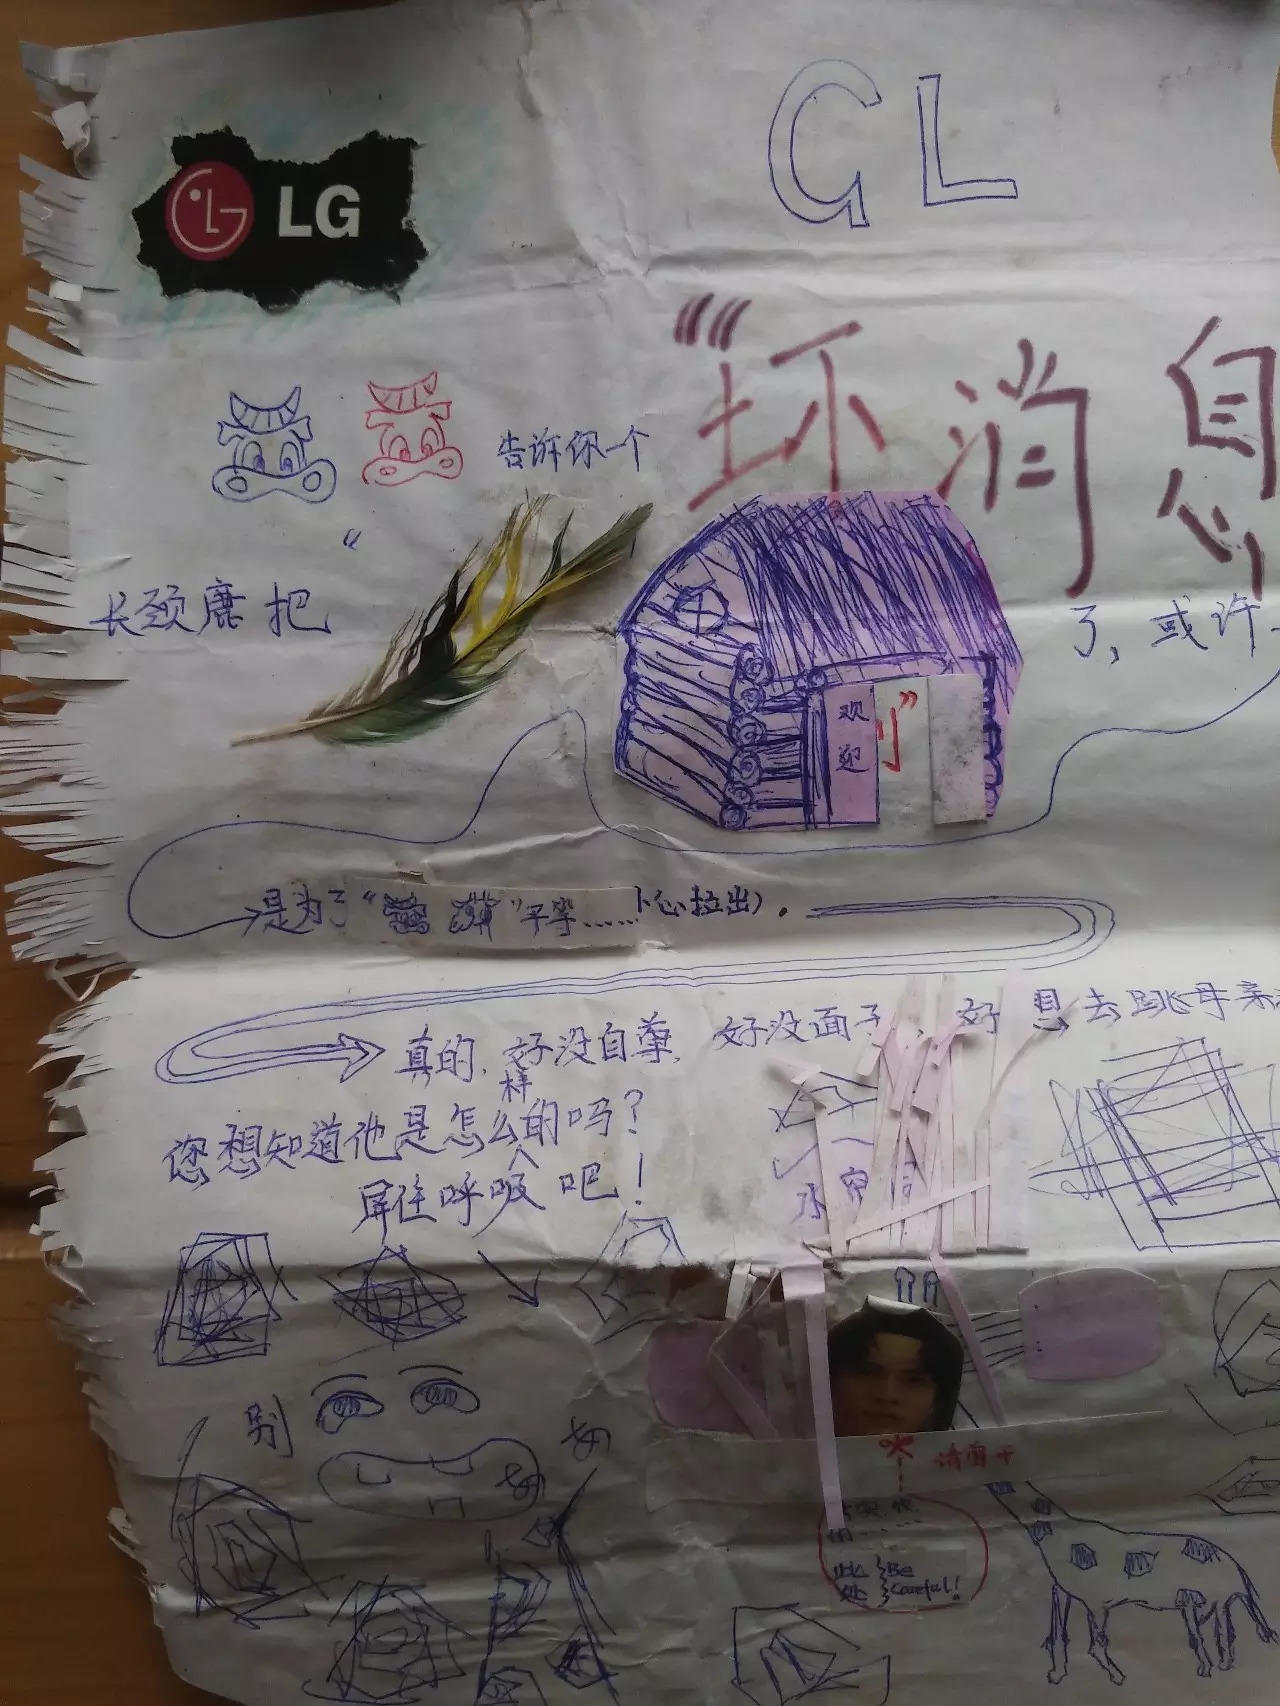 GL
LG
告诉你一个
“坏消息
“
长颈鹿把
了，或许
欢迎
”
是为了“
”平等……小心拉出）.
真的，好没自尊，好没面子，好想去跳母亲
您想知道他是怎么样的吗？
屏住呼吸吧！
水帘洞
别
请窗开
此处
Be
Careful!